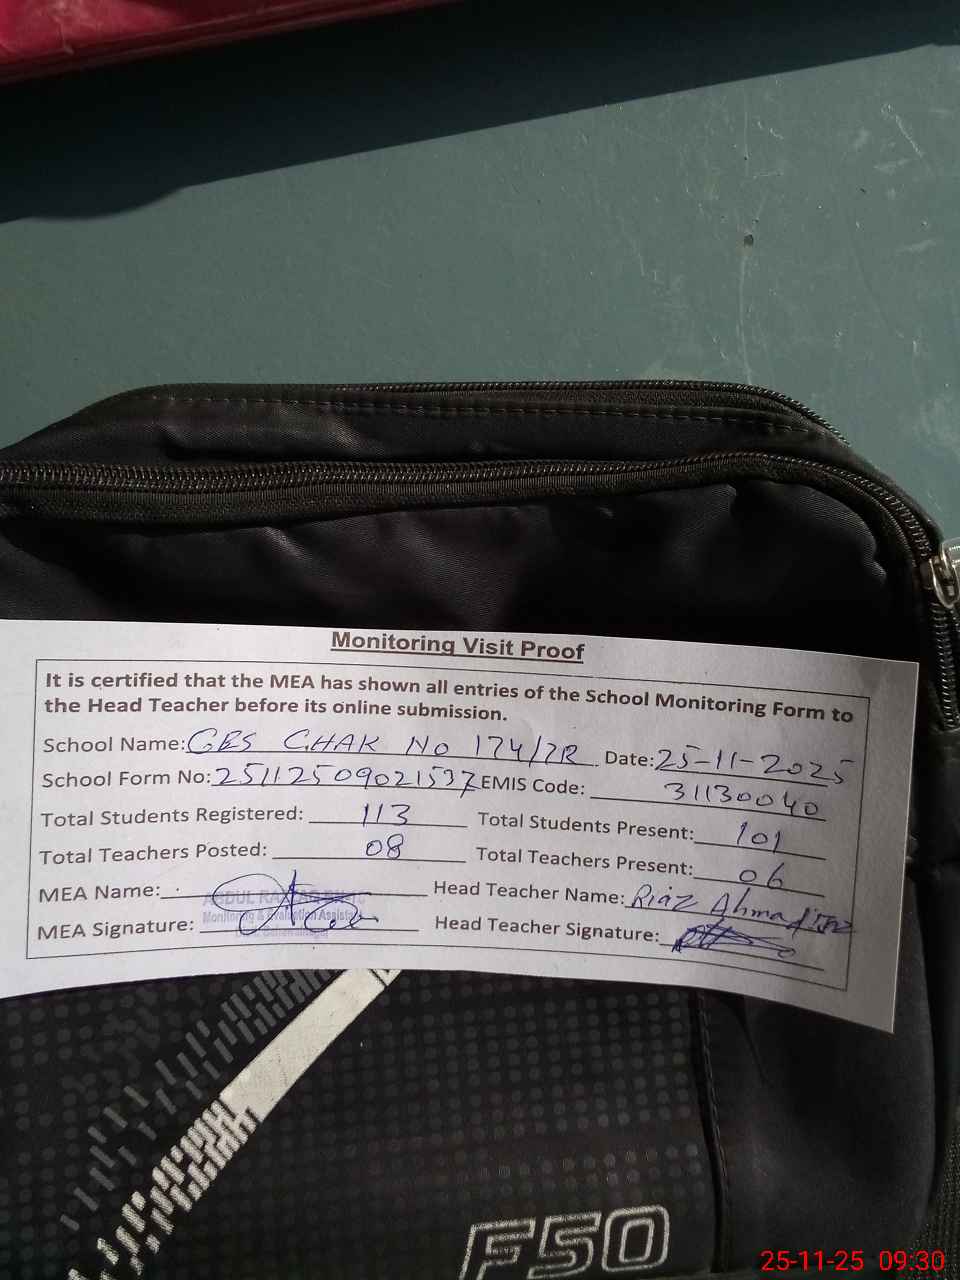 Monitoring Visit Proof
It is certified that the MEA has shown all entries of the School Monitoring Form to
the Head Teacher before its online submission.
School Name: GES CHAK No 174/7R Date: 25-11-2025
School Form No: 25112509021537 EMIS Code: 31130040
Total Students Registered: 113 Total Students Present: 101
Total Teachers Posted: 08 Total Teachers Present: 06
MEA Name: ABDUL Head Teacher Name: Riaz Ahmad
Monitoring & Evaluation Assistant
MEA Signature: Head Teacher Signature:
F50
25-11-25 09:30